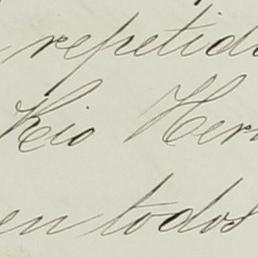 repetid
Rio Her
en todos